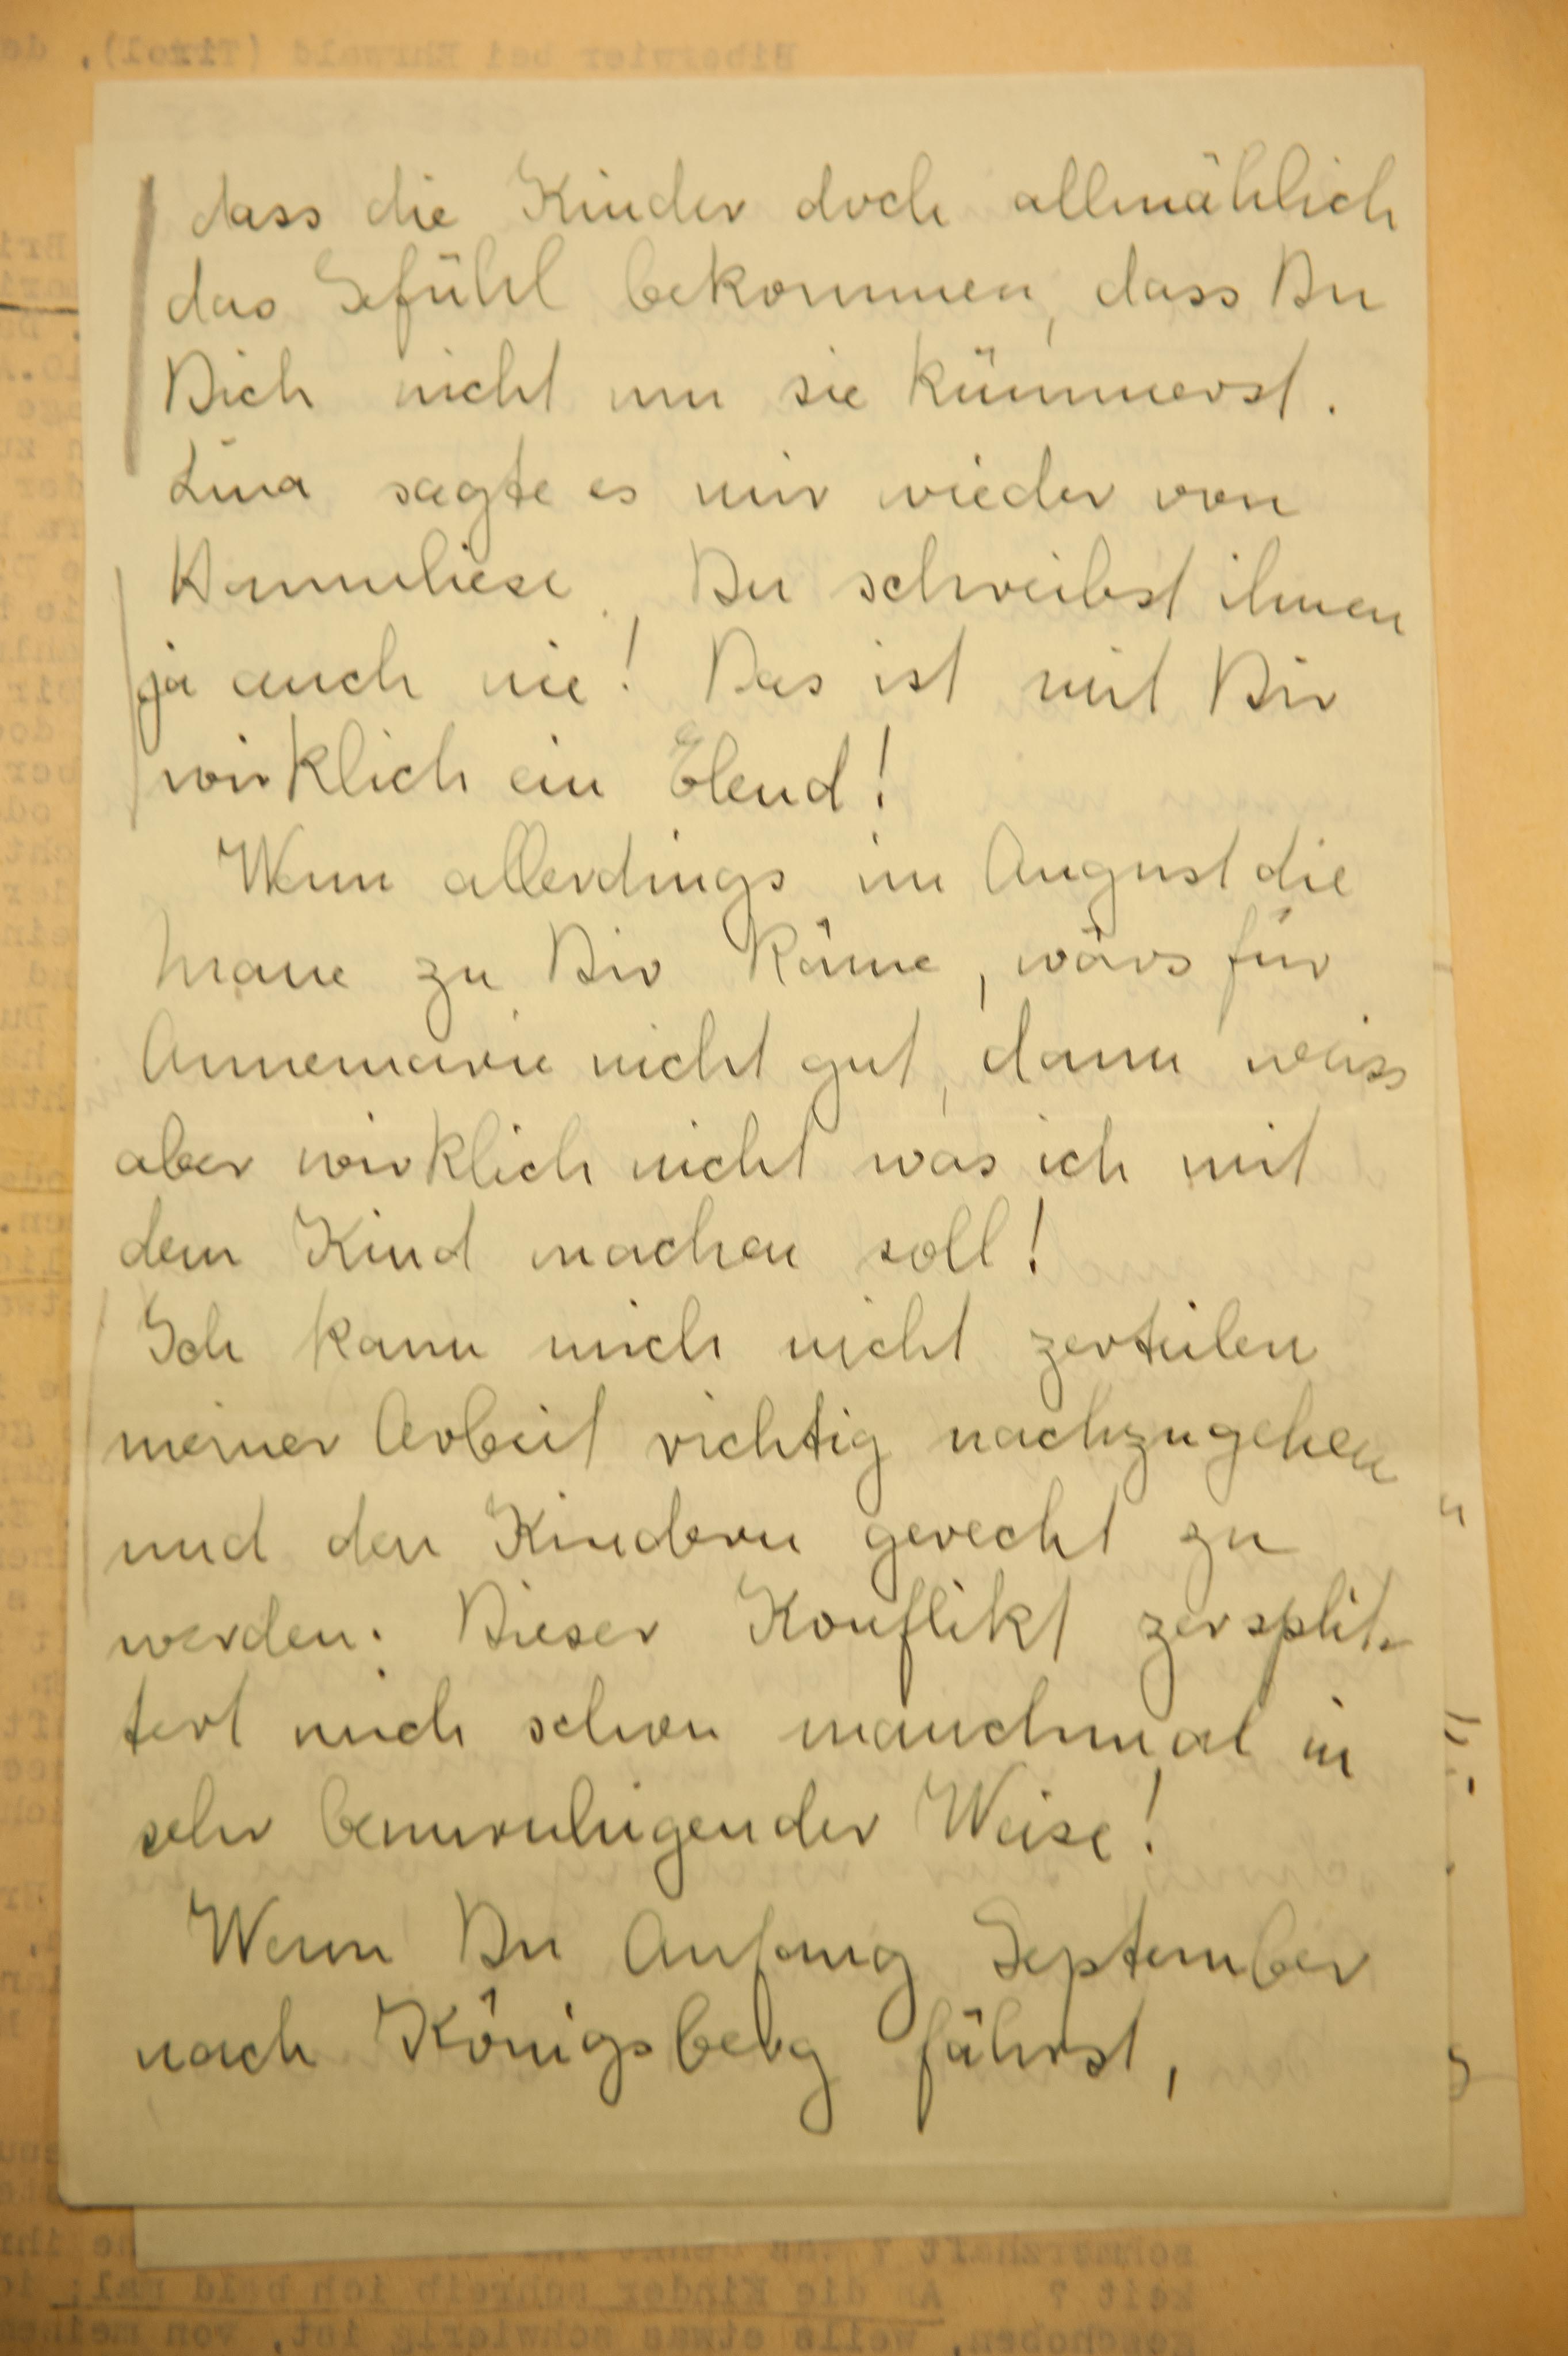 dass die Kinder doch allmählich
das Gefühl bekommen, dass Du
Dich nicht um sie kümmerst.
Lina sagte es mir wieder von
Hanneliese. Du schreibst ihnen
ja auch nie! Das ist mit Dir
wirklich ein Elend!
Wenn allerdings im August die
zu Dir käme, wärs für
Annemarie nicht gut, dann weiss
aber wirklich nicht was ich mit
dem Kind machen soll!
Ich kann mich nicht zerteilen
meiner Arbeit richtig nachzugehen
und den Kindern gerecht zu
werden. Dieser Konflikt zersplit-
tert mich schon manchmal in
sehr beunruhigender Weise!
Wenn Du Anfang September
nach Königsberg fährst,
Biberwier bei Ehrwald (Tirol), de
zeit ? An die Kinder schreib ich bald mal; ic
geschoben, weils etwas schwierig ist, von meinem